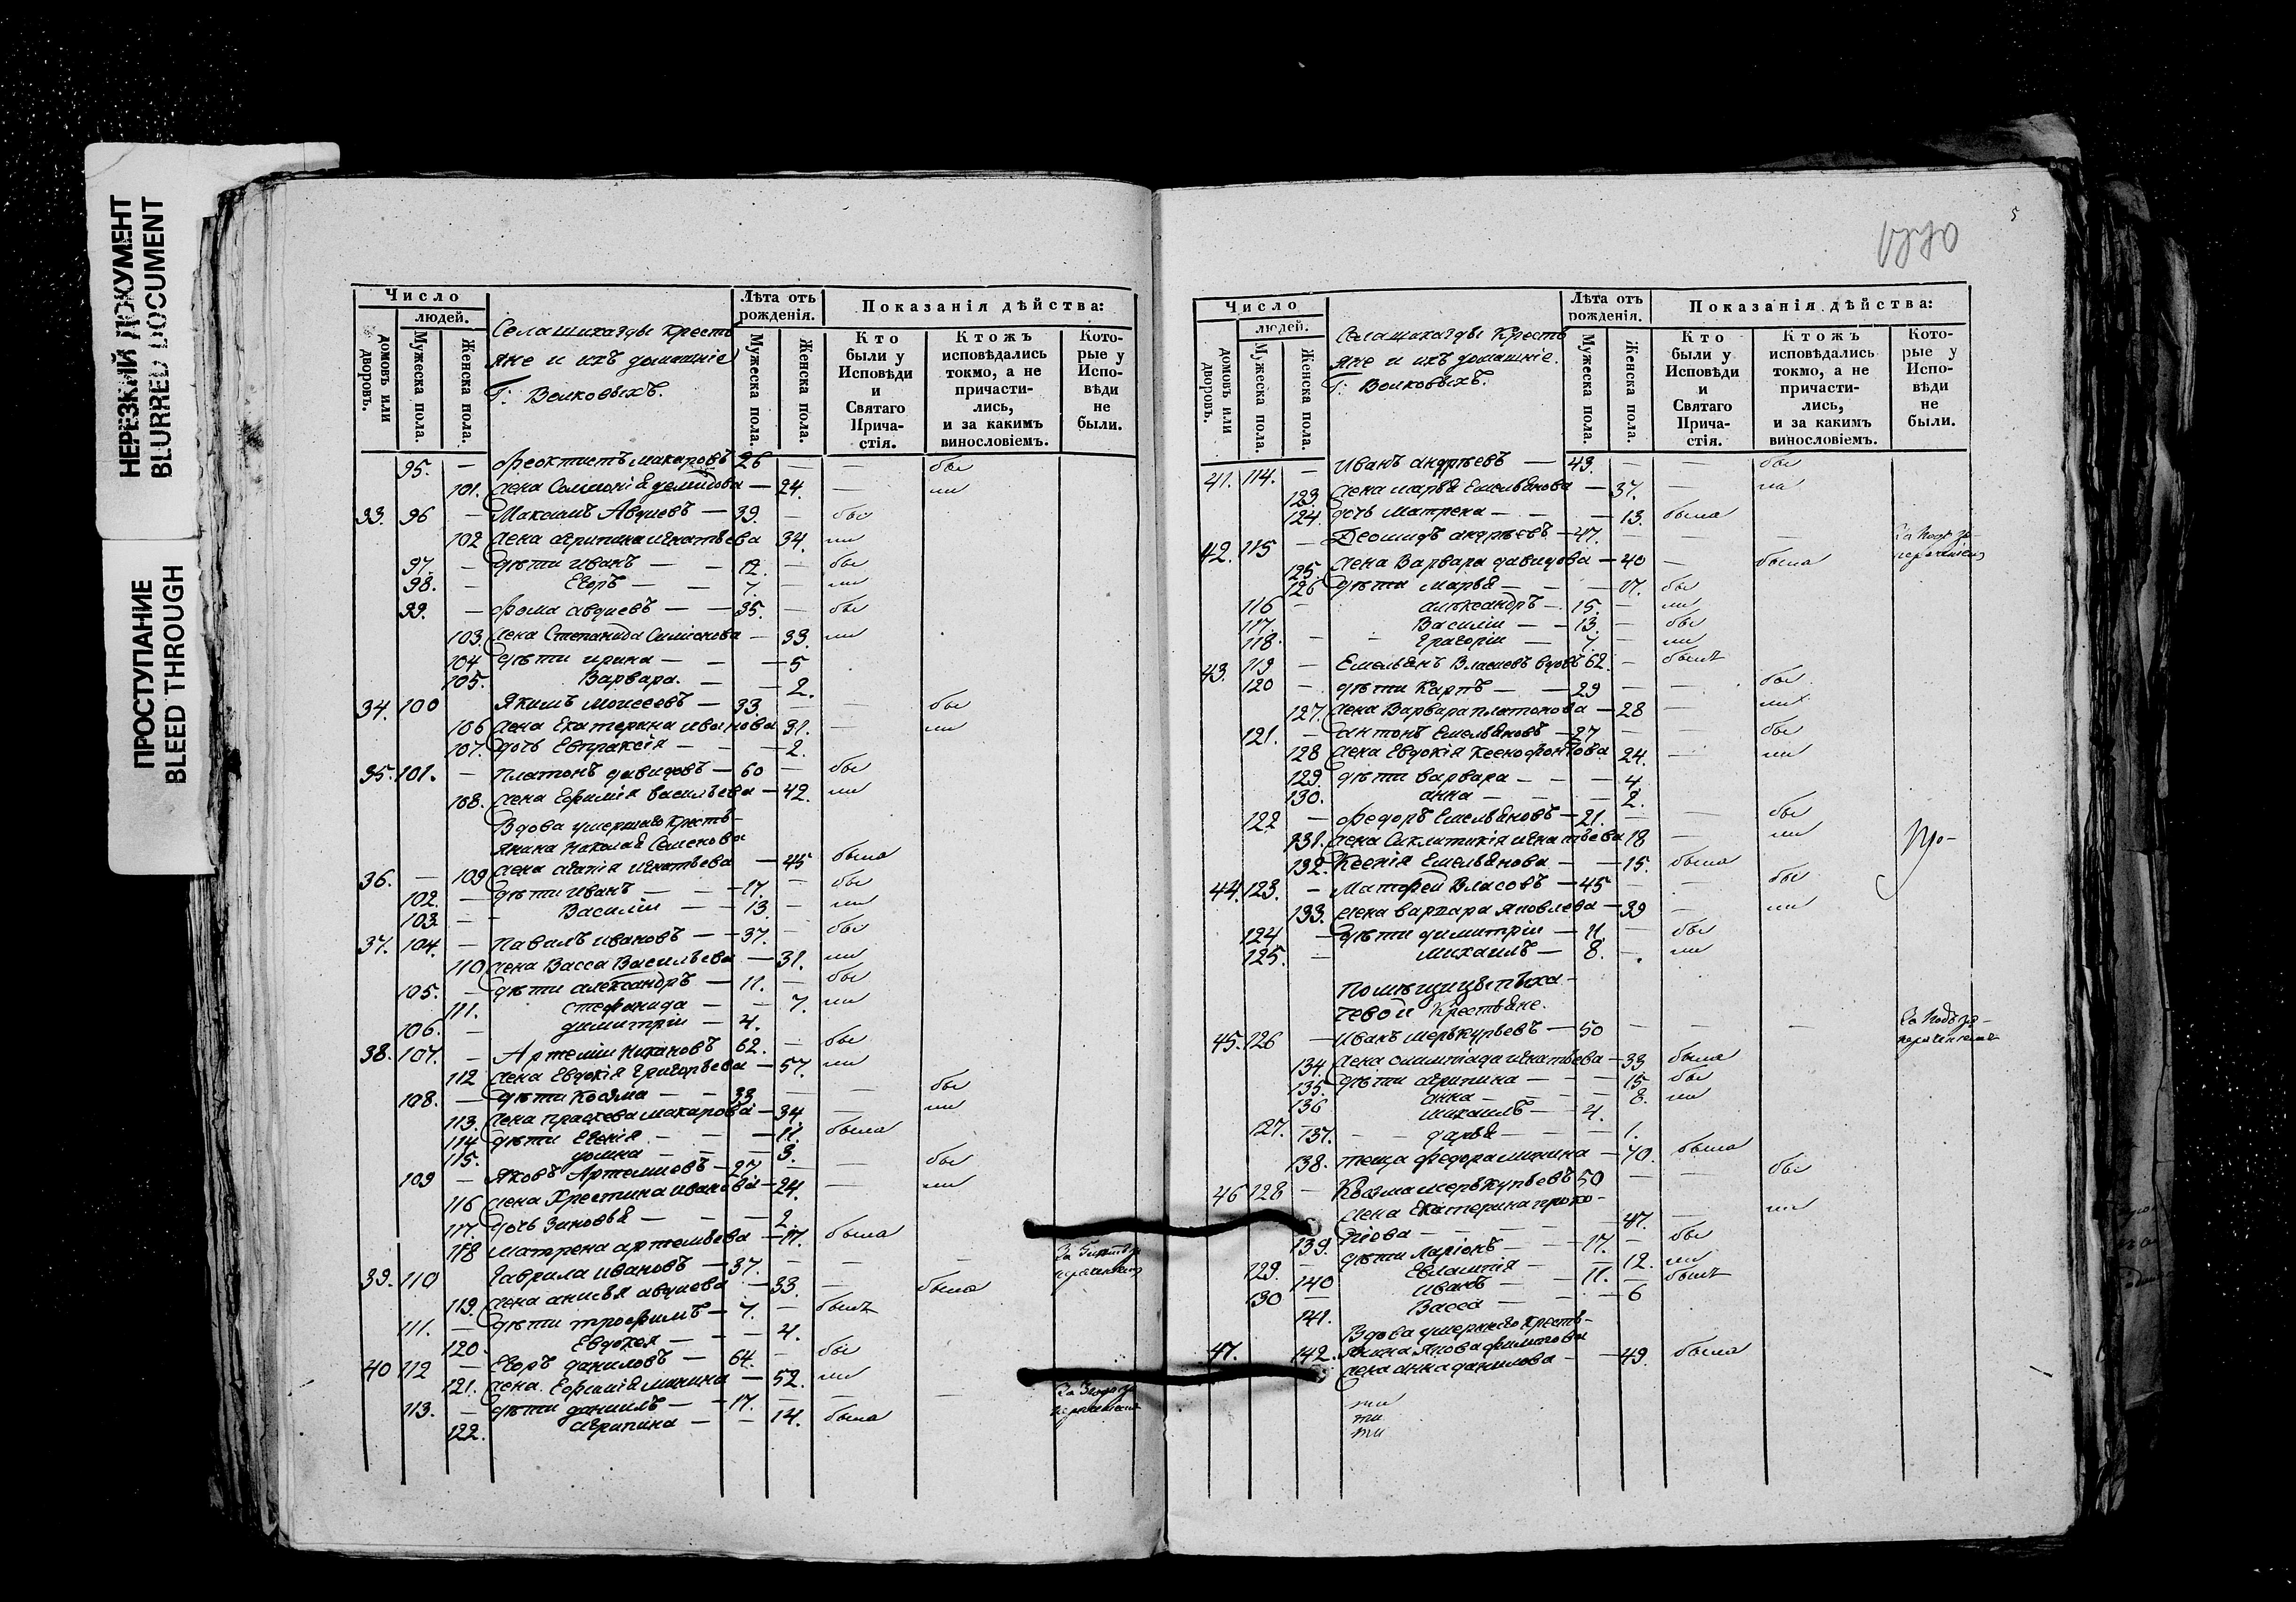 НЕРЕЗКИЙ ДОКУМЕНТ
BLURRED DOCUMENT
ПРОСТУПАНИЕ
BLEED THROUGH
Число
людей.
домовъ или дворовъ.
Мужеска пола.
Женска пола.
Села Шихазды Кресть
яне и ихъ домашніе
Г: Волковыхъ.
Лѣта отъ рожденія.
Мужеска пола.
Женска пола.
Показанія дѣйства:
Кто были у Исповѣди и Святаго Прича-стія.
Ктожъ исповѣдались токмо, а не причасти-лись, и за какимъ винословіемъ.
Кото-рые у Испо-вѣди не были.
95. — Феоктистъ Макаровъ 26 — — бы
101. жена Соломонія Демидова — 24. — ли
33. 96 — Максимъ Авдиевъ — 39. — бы
102 жена агрипина игнатьева 34. ли
97. — дѣти иванъ — — 12. — бы
98. — Егоръ — 7. — ли
99. — фома авдиевъ — — 35. — бы
103. жена Степанида Симионова — 33. ли
104 дѣти ирина — — — 5
105. Варвара. — — 2.
34. 100 Якимъ Моисеевъ — 33. — — бы
106 жена Екатерина иванова 31. — ли
107. дочь Евпраксія — — — 2.
35. 101. — платонъ давидовъ — 60 — бы
108. жена Ефимія васильева — 42. ли
Вдова умершаго кресть-
янина Николая Семенова
36. — 109 жена агапія игнатьева — 45 была
102. — дѣти иванъ — — 17. — бы
103. — Василіи — — 13. — ли
37. 104. — павелъ ивановъ — — 37. — бы
110 жена Васса Васильева — 31. ли
105. — дѣти александръ — 11. — бы
111. стефанида — — 7. ли
106. — димитріи — 4.
38. 107. — Артеміи 62. — бы
112 жена Евдокія григорьева — 57. ли
108. — дѣти Козма — — 33 — — бы
113. жена праскева макарова — 34. — ли
114 дѣти Евгенія — — — 11. была
115. домна — — — 3.
109 — Яковъ Артемиевъ — 27 — — бы
116 жена Христина иванова — 24. — ли
117. дочь Зиновья — — — 2.
118 матрена артемьева — 17. была
39. 110 Гаврила ивановъ — 37. — — —
119. жена анисья авдиева — 33. — была
111. — дѣти трофимъ — 7. — былъ
120. Евдокея — — — 4.
40 112 — Егоръ даниловъ — 64. — бы
121. жена Ефимія минина — 52. ли
113. — дѣти даниилъ — — 17. — — —
122. агрипина — — 14. была
5
Число
людей.
домовъ или дворовъ.
Мужеска пола
Женска пола.
Села Шихазды Кресть
яне и ихъ домашніе.
Г: Волковыхъ.
Лѣта отъ рожденія.
Мужеска пола.
Женска пола.
Показанія дѣйства:
Кто были у Исповѣди и Святаго Прича-стія.
Ктожъ исповѣдались токмо, а не причасти-лись, и за какимъ винословіемъ.
Кото-рые у Испо-вѣди не были.
41. 114. — Иванъ андреевъ — 43. — — бы
123. жена марья Емельянова — 37. — ла
124. дочь матрена — — — 13. была
42. 115 — Деомидъ андреевъ — 47. — — —
125. жена Варвара давидова — 40 — была
126 дѣти марья — — — 17. бы
116 — александръ — 15. — ли
117. Василіи — — 13. — бы
118. — григоріи — 7. — ли
43. 119 — Емельянъ Власиевъ вдовъ 62. — былъ
120 — дѣти Карпъ — — 29 — — бы
127. жена Варвара платонова — 28 — ли
121. — антонъ Емельяновъ — 27 — — бы
128 жена Евдокія Ксенофонтова 24. — ли
129. дѣти варвара — — — 4.
130. анна — — — 2.
122 — федоръ Емельяновъ — 21. — — бы
131. жена Синклитикія игнатьева 18 — ли
132. Ксенія Емельянова — — 15. была
44. 123. — Матфей Власовъ — 45 — — бы
133. жена варвара яковлева — 39 — ли
124 — дѣти димитріи — 11 — бы
125. — михаилъ — 8. — ли
Крестьяне.
45. 126 — Иванъ меркурьевъ — 50 — — —
134. жена олимпиада игнатьева — 33. была
135. дѣти агрипина — — — 15. бы
136 анна — — — 8. ли
127. михаилъ — 4.
137. — — дарья — — — 1.
138. теща федора минина — 70. была
46 128 — Козма меркурьевъ 50 — — бы
жена Екатерина проко-
139. піева — — — 47. — ли
129. — дѣти ларіонъ — — 17. — бы
140 Евлампія — — — 12. ли
130 — иванъ — — 11. — былъ
141. Васса — — — 6
Вдова умершаго кресть-
47. 142. янина Якова
жена анна данилова — — 49. была
ти
ти
ти